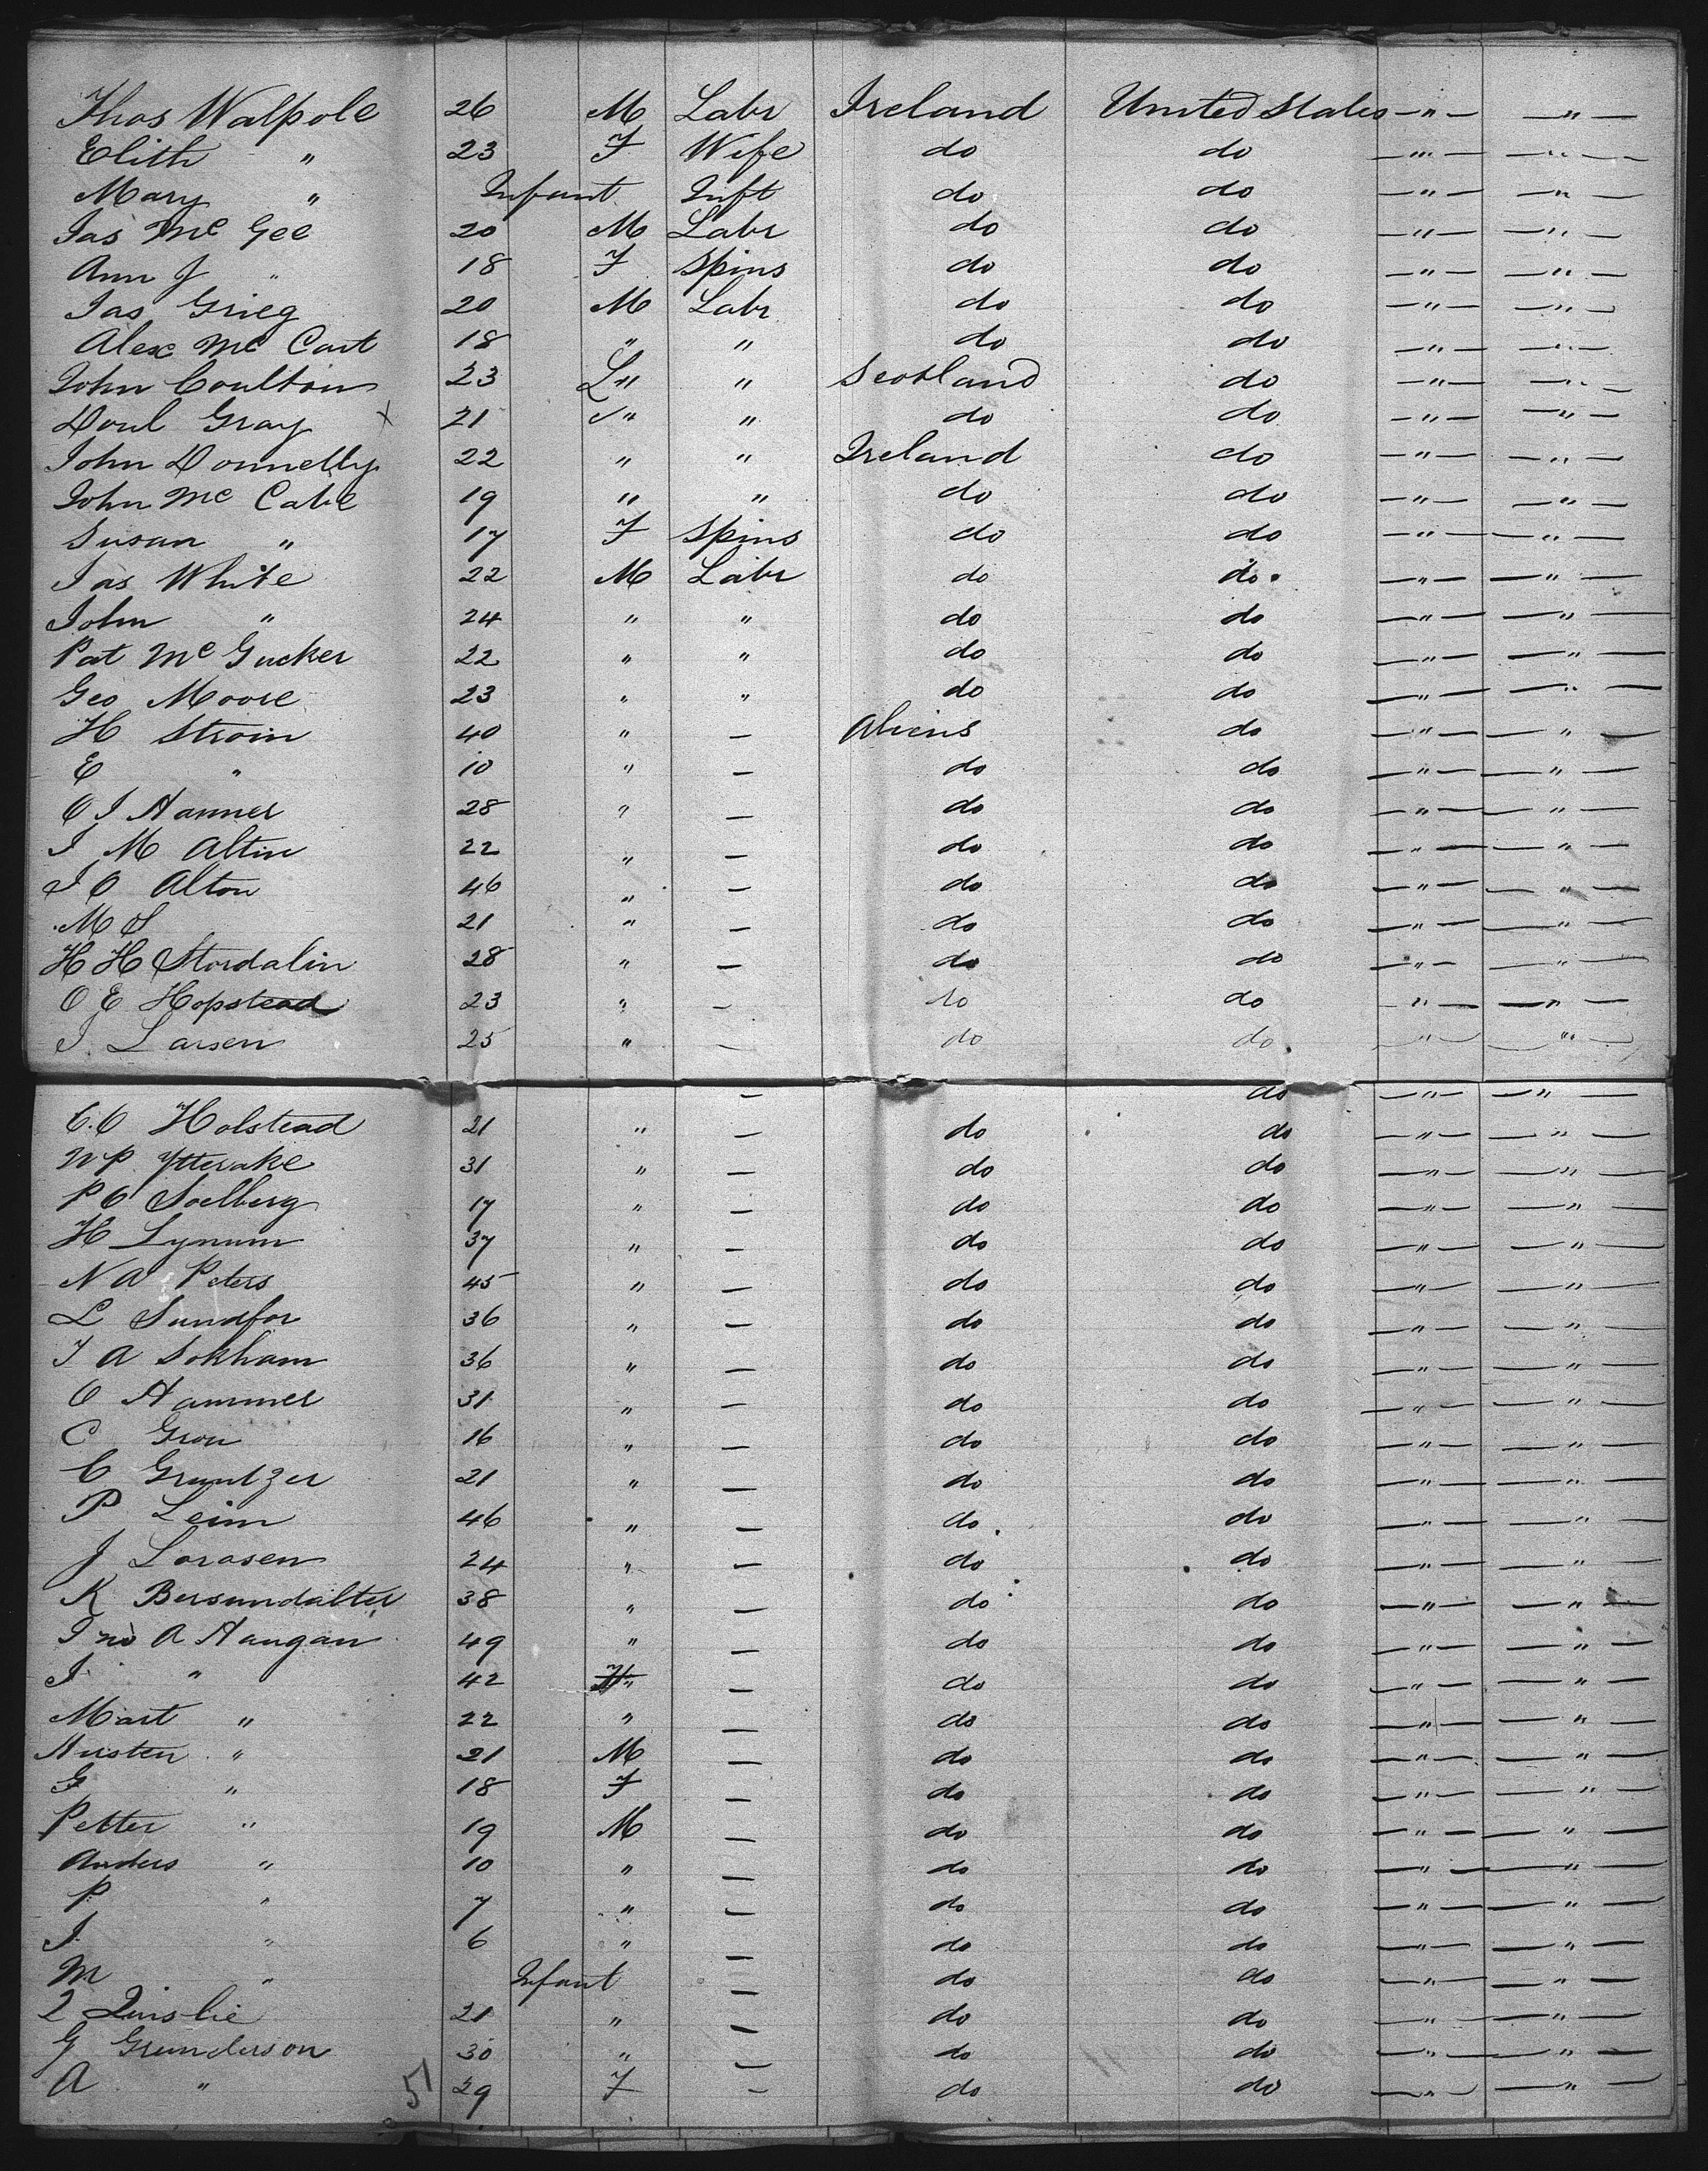 Thos Walpole 26 M Labr Ireland United States — " — — " —
Elith " 23 F Wife do do — " — — " —
Mary " Infant Inft do do — " — — " —
Jas Mc Gee 20 M Labr do do — " — — " —
Ann J " 18 F Spins do do — " — — " —
Jas Grieg 20 M Labr do do — " — — " —
Alex Mc Cart 18 " " do do — " — — " —
John Coulton 23 " " Scotland do — " — — " —
Doul Gray x 21 " " do do — " — — " —
John Donnelly 22 " " Ireland do — " — — " —
John Mc Cabe 19 " " do do — " — — " —
Susan " 17 F Spins do do — " — — " —
Jas White 22 M Labr do do — " — — " —
John " 24 " " do do — " — — " —
Pat Mc Gucker 22 " " do do — " — — " —
Geo Moore 23 " " do do — " — — " —
H Stroin 40 " — Aliens do — " — — " —
E " 10 " — do do — " — — " —
O J Hanner 28 " — do do — " — — " —
I M Altin 22 " — do do — " — — " —
I O Alton 46 " — do do — " — — " —
M S 21 " — do do — " — — " —
H H Stordalin 28 " — do do — " — — " —
O E Hopstead 23 " — do do — " — — " —
I Larsen 25 " — do do — " — — " —
— do — " — — " —
C. C Holstead 21 " — do do — " — — " —
N P Ytterake 31 " — do do — " — — " —
P O Soelberg 17 " — do do — " — — " —
H Lynum 37 " — do do — " — — " —
N A Peters 45 " — do do — " — — " —
L Sundfor 36 " — do do — " — — " —
I A Sokham 36 " — do do — " — — " —
O Hammer 31 " — do do — " — — " —
C Gron 16 " — do do — " — — " —
C Gruntzer 21 " — do do — " — — " —
P Leim 46 " — do do — " — — " —
J Lorasen 24 " — do do — " — — " —
K Bersundalter 38 " — do do — " — — " —
Jno A Haugan 49 " — do do — " — — " —
I " 42 — do do — " — — " —
Mart " 22 " — do do — " — — " —
Austen " 21 M — do do — " — — " —
G " 18 F — do do — " — — " —
Petter " 19 M — do do — " — — " —
Anders " 10 " — do do — " — — " —
P " 7 " — do do — " — — " —
I " 6 " — do do — " — — " —
M " Infant — do do — " — — " —
Quislie 21 " — do do — " — — " —
G Grunderson 30 " — do do — " — — " —
A " 29 F — do do — " — — " —
51